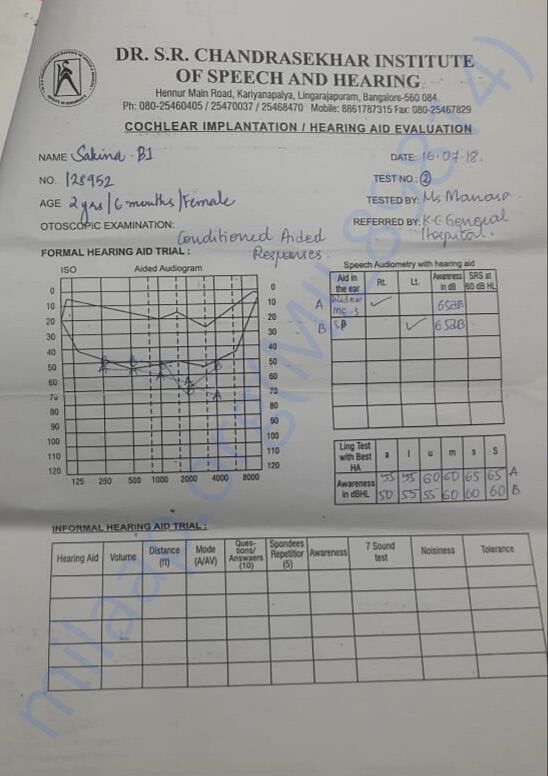 DR. S.R. CHANDRASEKHAR INSTITUTE
OF SPEECH AND HEARING
Hennur Main Road, Kariyanapalya, Lingarajapuram, Bangalore-560 084.
Ph: 080-25460405 / 25470037 / 25468470 Mobile: 8861787315 Fax: 080-25467829
COCHLEAR IMPLANTATION / HEARING AID EVALUATION
NAME Sakina BI DATE: 16.07.18.
NO. 128952 TEST NO.: 2
AGE 2 yrs / 6 months / Female TESTED BY: Ms Manasa
OTOSCOPIC EXAMINATION: REFERRED BY: K C General Hospital.
Conditioned Aided Responses.
FORMAL HEARING AID TRIAL :
ISO Aided Audiogram
0 0
10 10
20 20
30 30
40 40
50 50
60 60
70 70
80 80
90 90
100 100
110 110
120 120
125 250 500 1000 2000 4000 8000
Speech Audiometry with hearing aid
Aid in the ear Rt. Lt. Awareness in dB SRS at 60 dB HL
A ✓ 65dB
B SP ✓ 65dB
Ling Test with Best HA a I u m s S
Awareness in dBHL 55 55 60 60 65 65 A
50 55 55 60 60 60 B
INFORMAL HEARING AID TRIAL :
Hearing Aid Volume Distance (ft) Mode (A/AV) Ques-tions/ Answaers (10) Spondees Repetitior (5) Awareness 7 Sound test Noisiness Tolerance